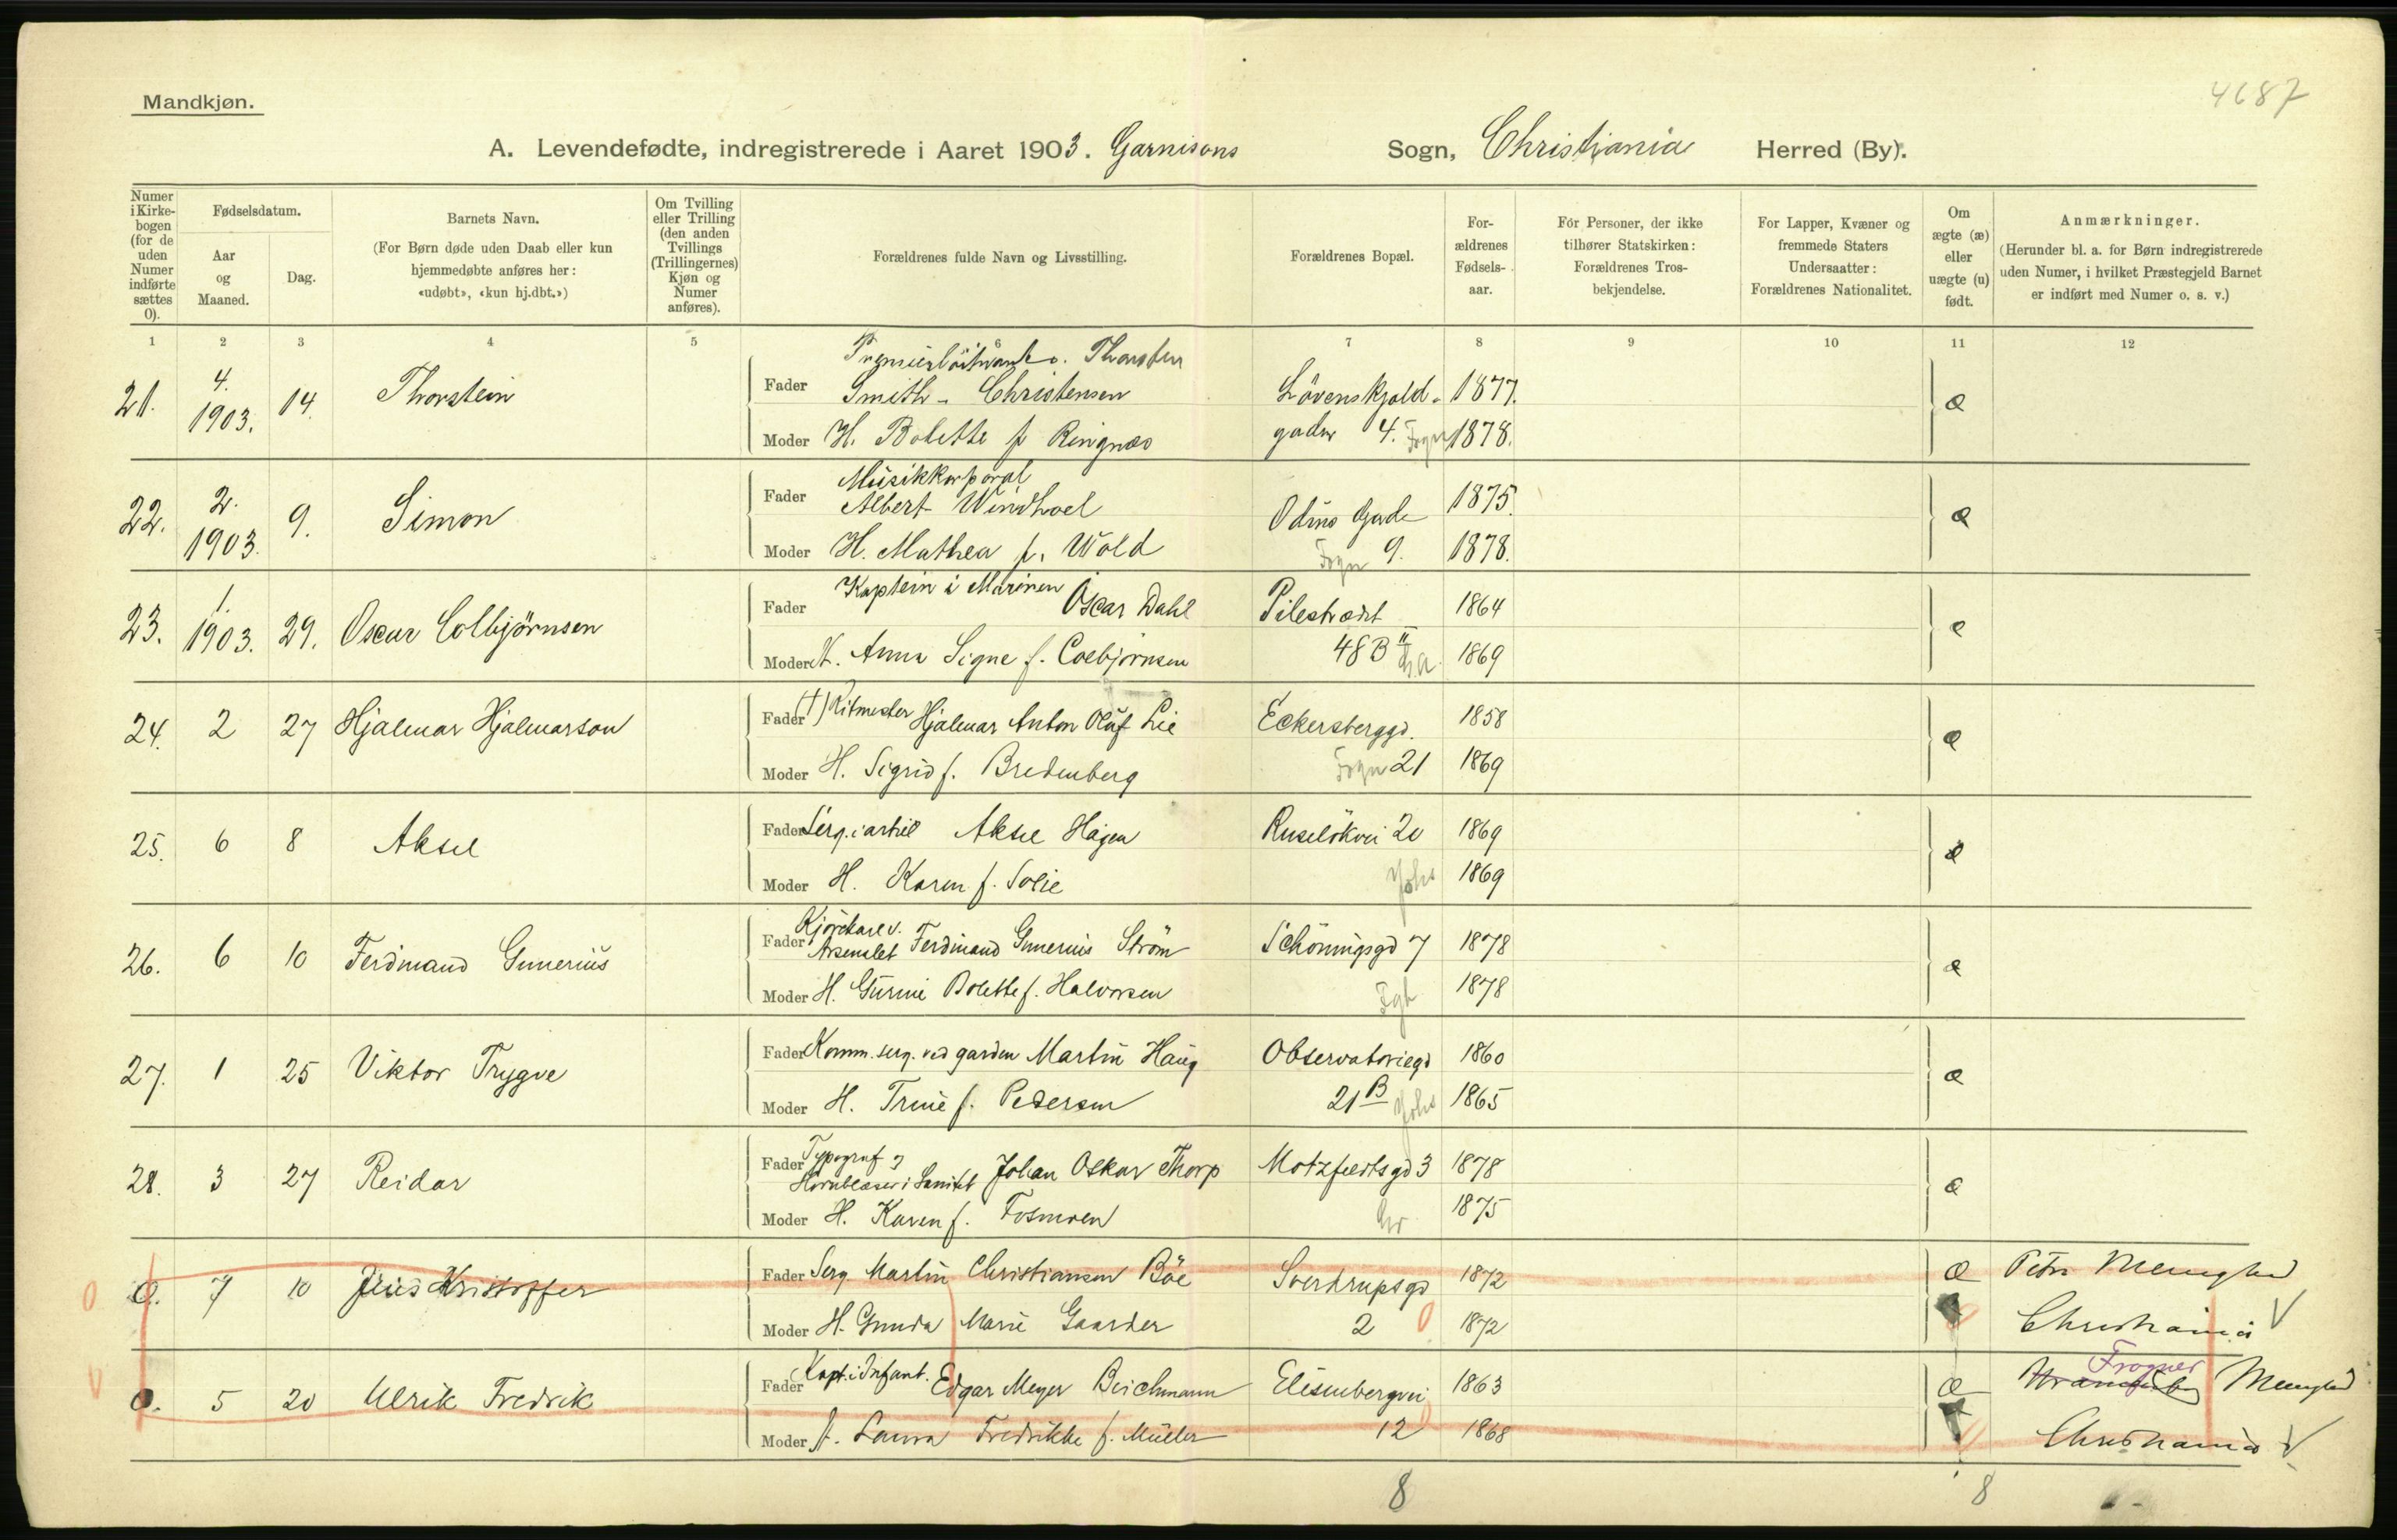 4687
Mandkjøn.
A. Levendefødte, indregistrerede i Aaret 1903. Garnisons Sogn, Christiania Herred (By).
Numer i Kirkebogen (for de uden Numer indførte sættes 0).
Fødselsdatum.
Aar og Maaned.
Dag.
Barnets Navn.
(For Børn døde uden Daab eller kun hjemmedøbte anføres her: «udøbt», «kun hj.dbt.»)
Om Tvilling eller Trilling (den anden Tvillings (Trillingernes) Kjøn og Numer anføres).
Forældrenes fulde Navn og Livsstilling.
Forældrenes Bopæl.
Forældrenes Fødselsaar.
For Personer, der ikke tilhører Statskirken: Forældrenes Trosbekjendelse.
For Lapper, Kvæner og fremmede Staters Undersaatter: Forældrenes Nationalitet.
Om ægte (æ) eller uægte (u) født.
Anmærkninger.
(Herunder bl. a. for Børn indregistrerede uden Numer, i hvilket Præstegjeld Barnet er indført med Numer o. s. v.)
1 2 3 4 5 6 7 8 9 10 11 12
21. 4. 1903. 14. Thorstein
Fader Thorsten Smith-Christensen Løvenskjold- 1877. æ
Moder H. Bolette f. Ringnæs gaden 4. Frogn 1878.
22. 2. 1903. 9. Simon
Fader Musikkorporal Albert Windhoel Odins Gade 1875. æ
Moder H. Mathea f. Wold 9. Frogn 1878.
23. 1. 1903. 29. Oscar Colbjörnsen
Fader Kaptein i Marinen Oscar Dahl Pilestrædet 1864 æ
Moder H. Anna Signe f. Colbjørnsen 48 B II 1869
24. 2 27 Hjalmar Hjalmarson
Fader (†) Ritmester Hjalmar Anton Oluf Lie Eckersberggd. 1858 æ
Moder H. Sigrid f. Bredenberg Frogn 21 1869
25. 6 8 Aksel
Fader Serg. i artil Aksel Hagen Ruselökvei 20 1869 æ
Moder H. Karen f. Solie Johs 1869
26. 6 10 Ferdinand Gunerius
Fader Arsenalet Ferdinand Gunerius Ström Schöningsgd 7 1878 æ
Moder H. Gurine Bolette f. Halvorsen 1878
27. 1 25 Viktor Trygve
Fader Komm. serg. ved garden Martin Haug Observatoriegd 1860 æ
Moder H. Trine f. Pedersen 21 B Johs 1865
28. 3 27 Reidar
Fader Typograf og Hornblæser i Sanitet Johan Oskar Thorp Motzfeldtsgd 3 1878 æ
Moder H. Karen f. Fosmoen Gr 1875
0 0. 7 10 Jens Kristoffer
Fader Serg. Martin Christiansen Böe Sverdrupsgd 1872 æ Petri Menighed
Moder H. Gunda Marie Gaarder 2 0 1872 Christiania V
V 0. 5 20 Ulrik Fredrik
Fader Kapt. i Infant. Edgar Meyer Beichmann Elisenbergvei 1863 æ Frogner Menighed
Moder H. Laura Fredrikke f. Müller 12 1868 Christiania V
8 8